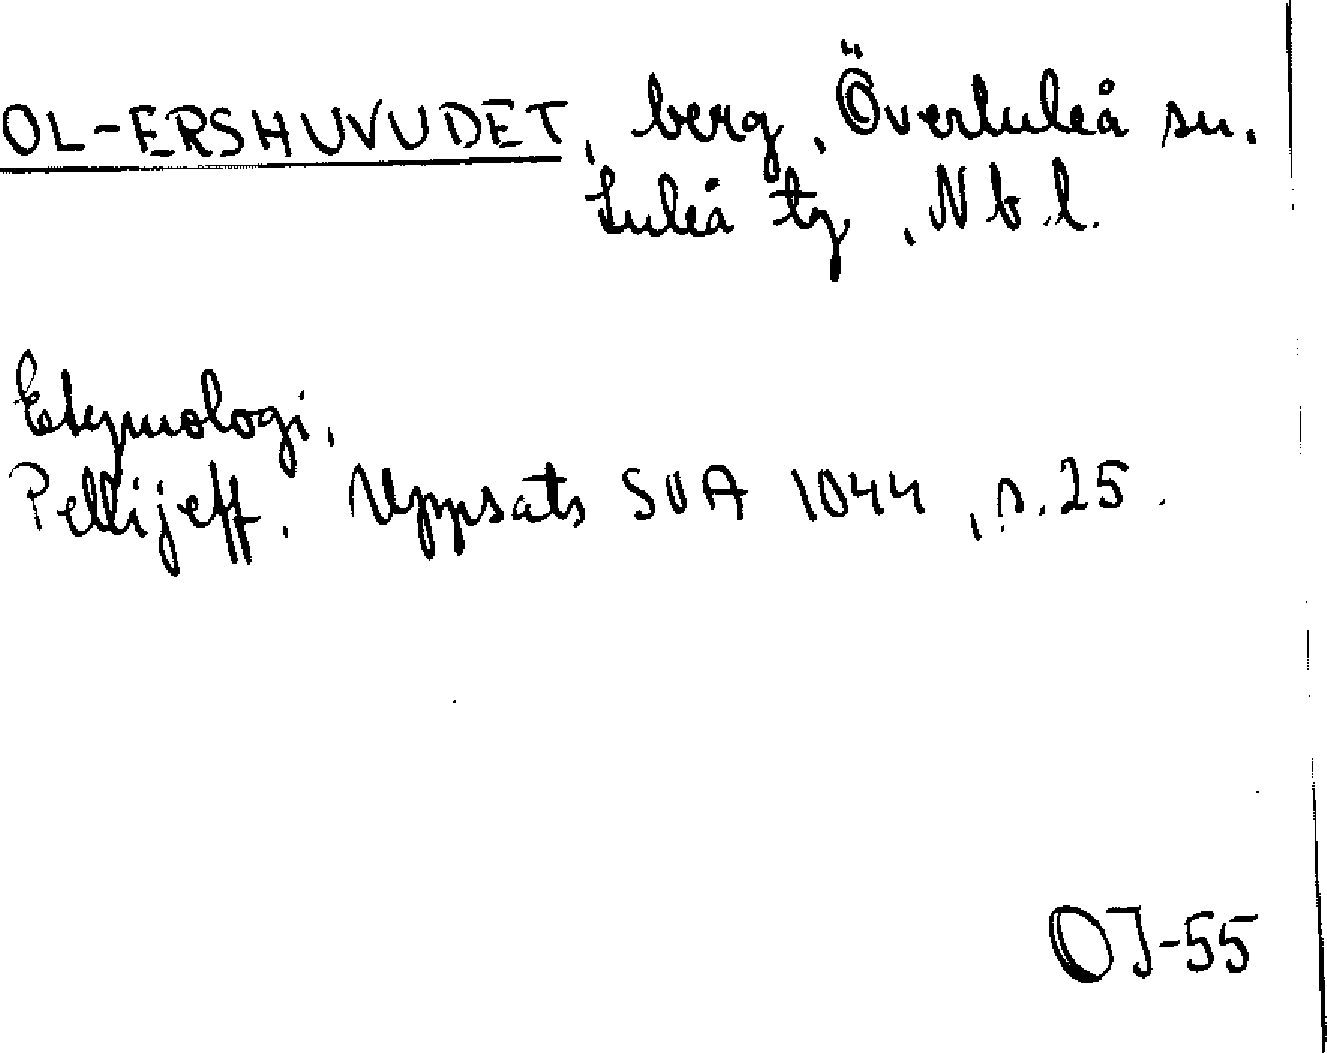 OL-ERSHUVUDET, berg, Överluleå sn.
Luleå tg, Nbl.
Etymologi,
Pellijeff. Uppsats SOA 1044, s. 25.
OJ-55